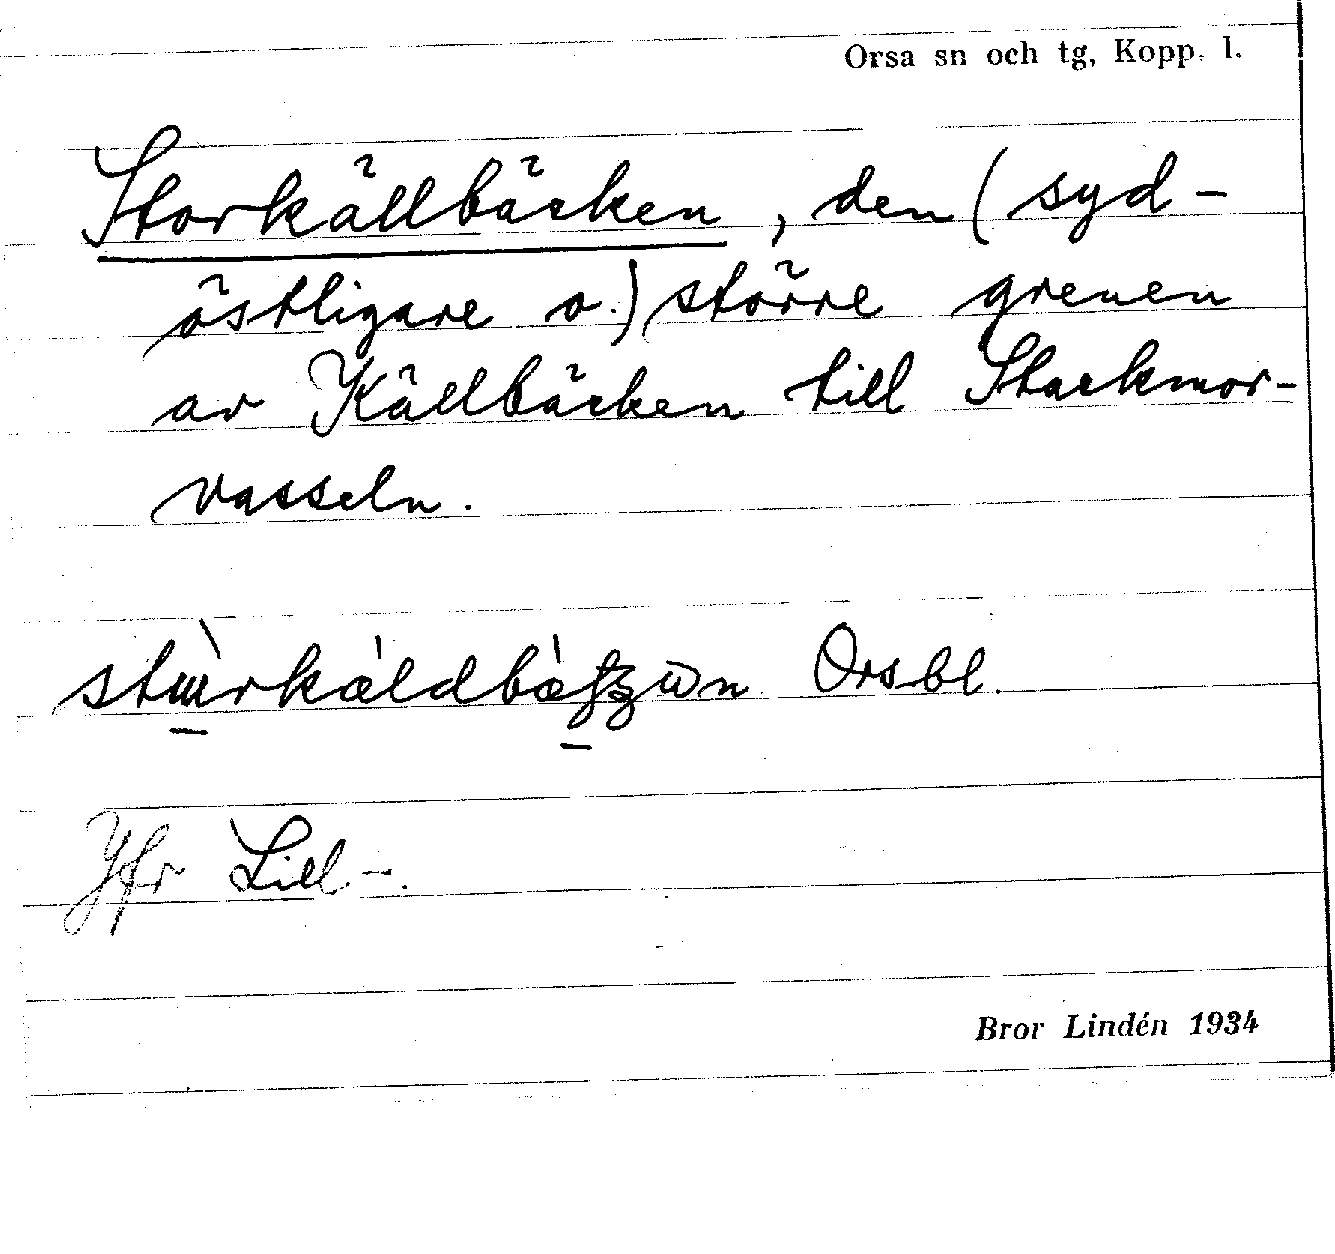 Orsa sn och tg, Kopp. l.
Storkällbäcken, den (syd-
östligare o.) större grenen
av Källbäcken till Stackmor-
vasseln.
Orsbl.
Jfr Lill-.
Bror Lindén 1934